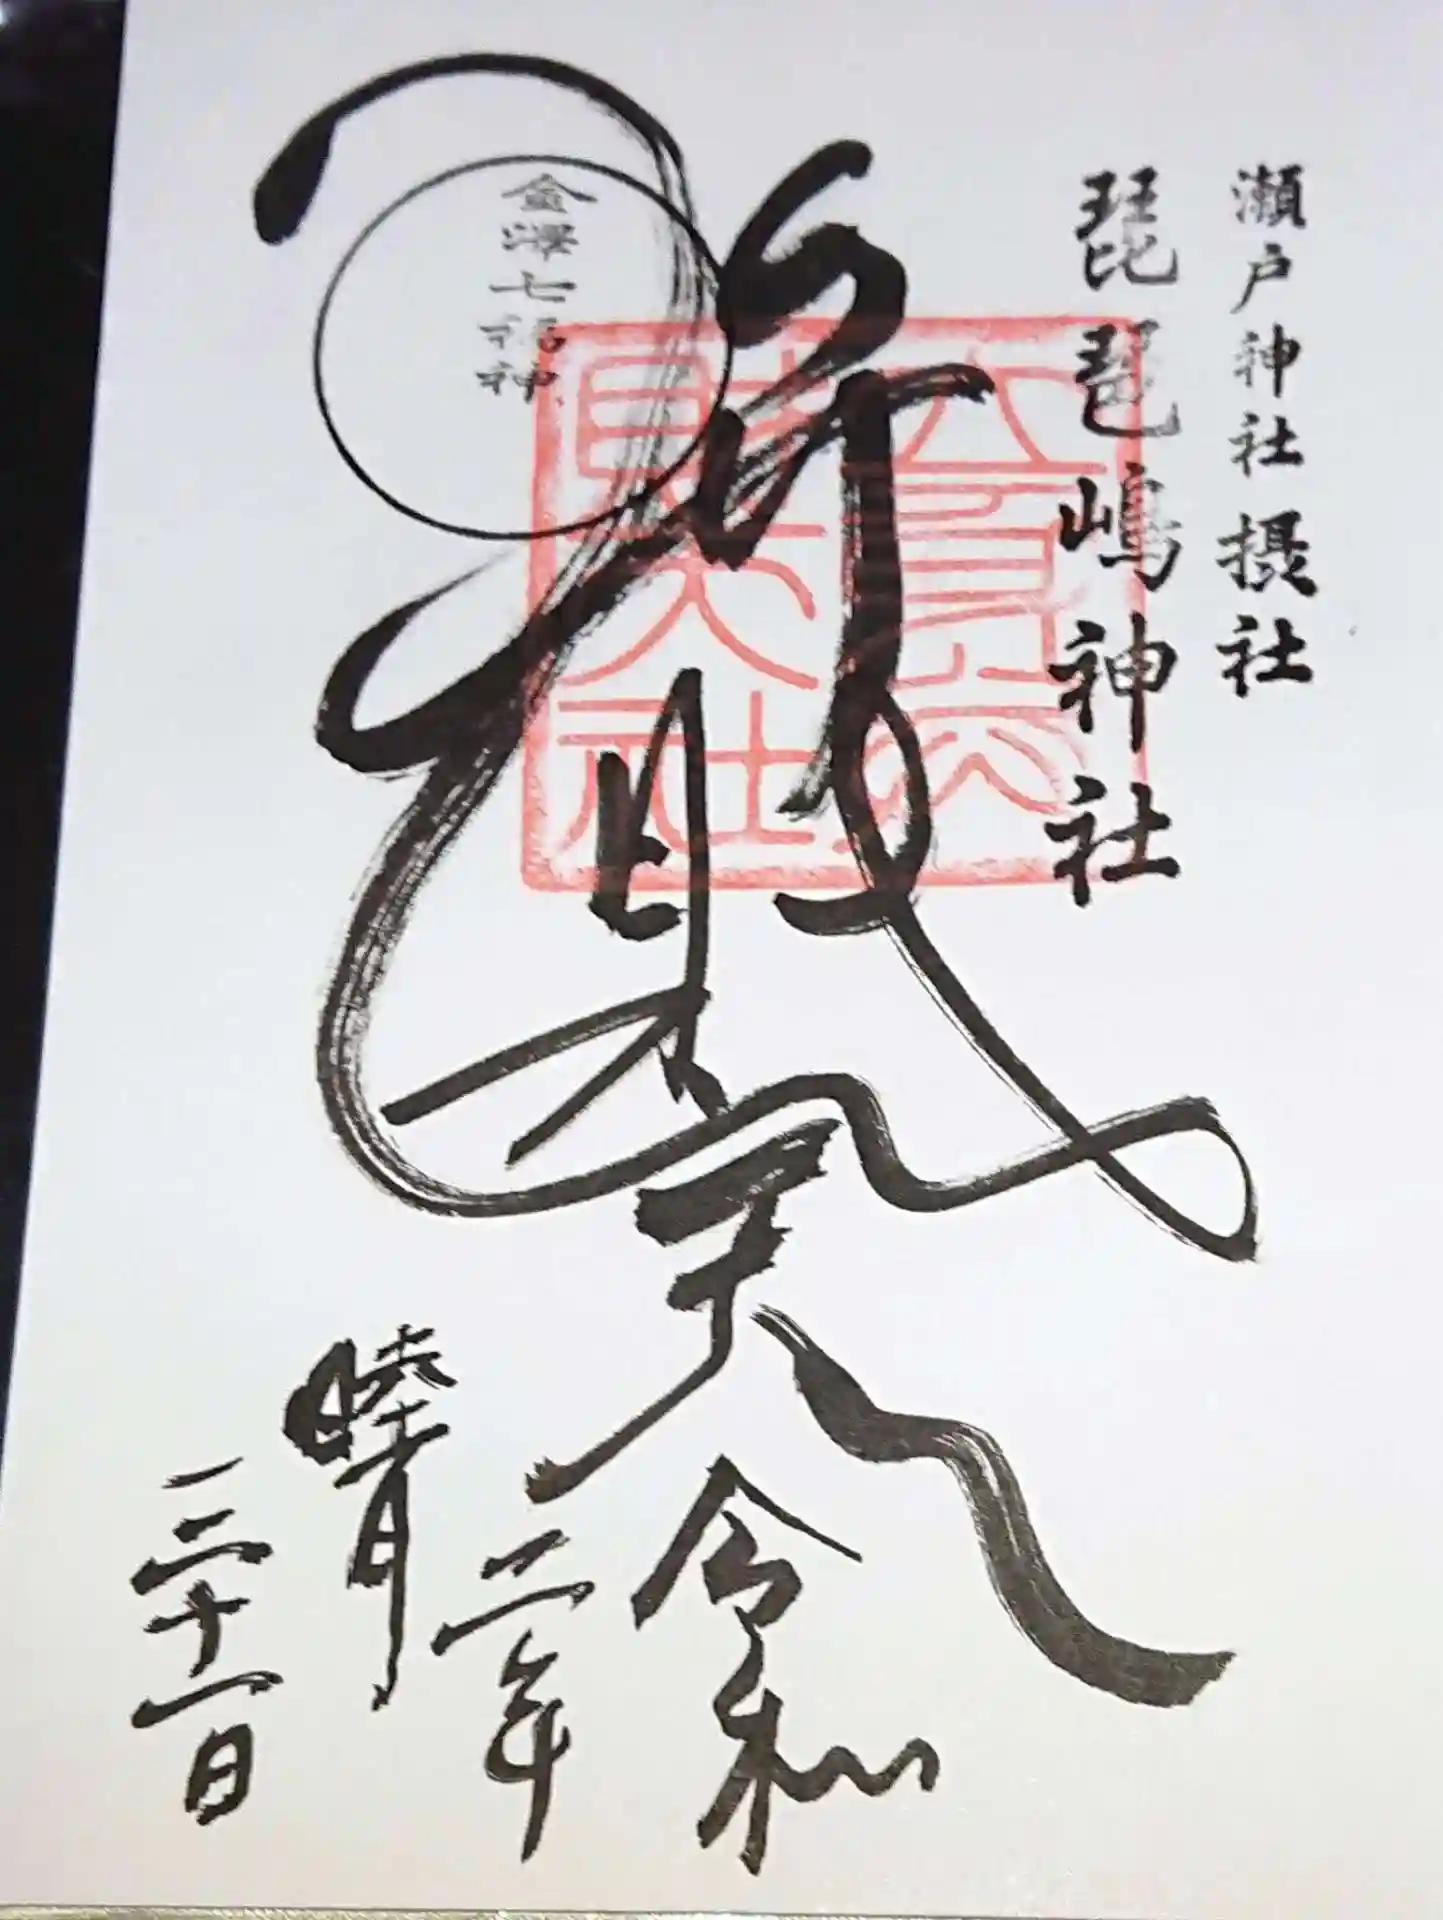 瀬戸神社摂社
琵琶嶋神社
金澤七福神
弁財天
令和
二年
睦月
三十一日